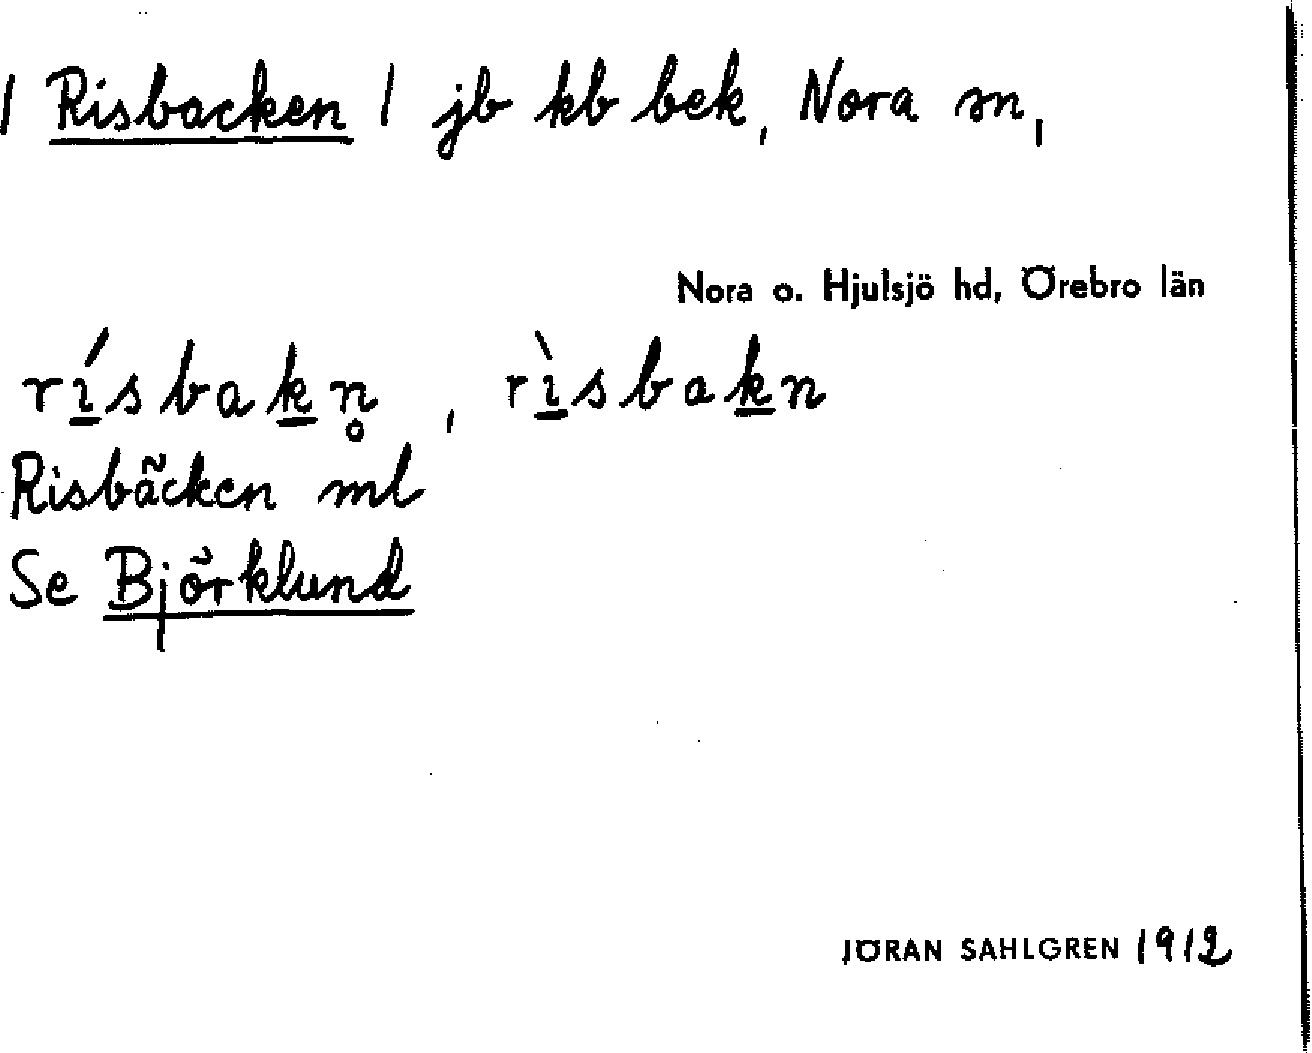 / Risbacken / jb kb bek, Nora sn,
Nora o. Hjulsjö hd, Örebro län
rí̲sbak̲n̥ , rı̲̀sbak̲n
Risbäcken ml
Se Björklund
JÖRAN SAHLGREN 1912